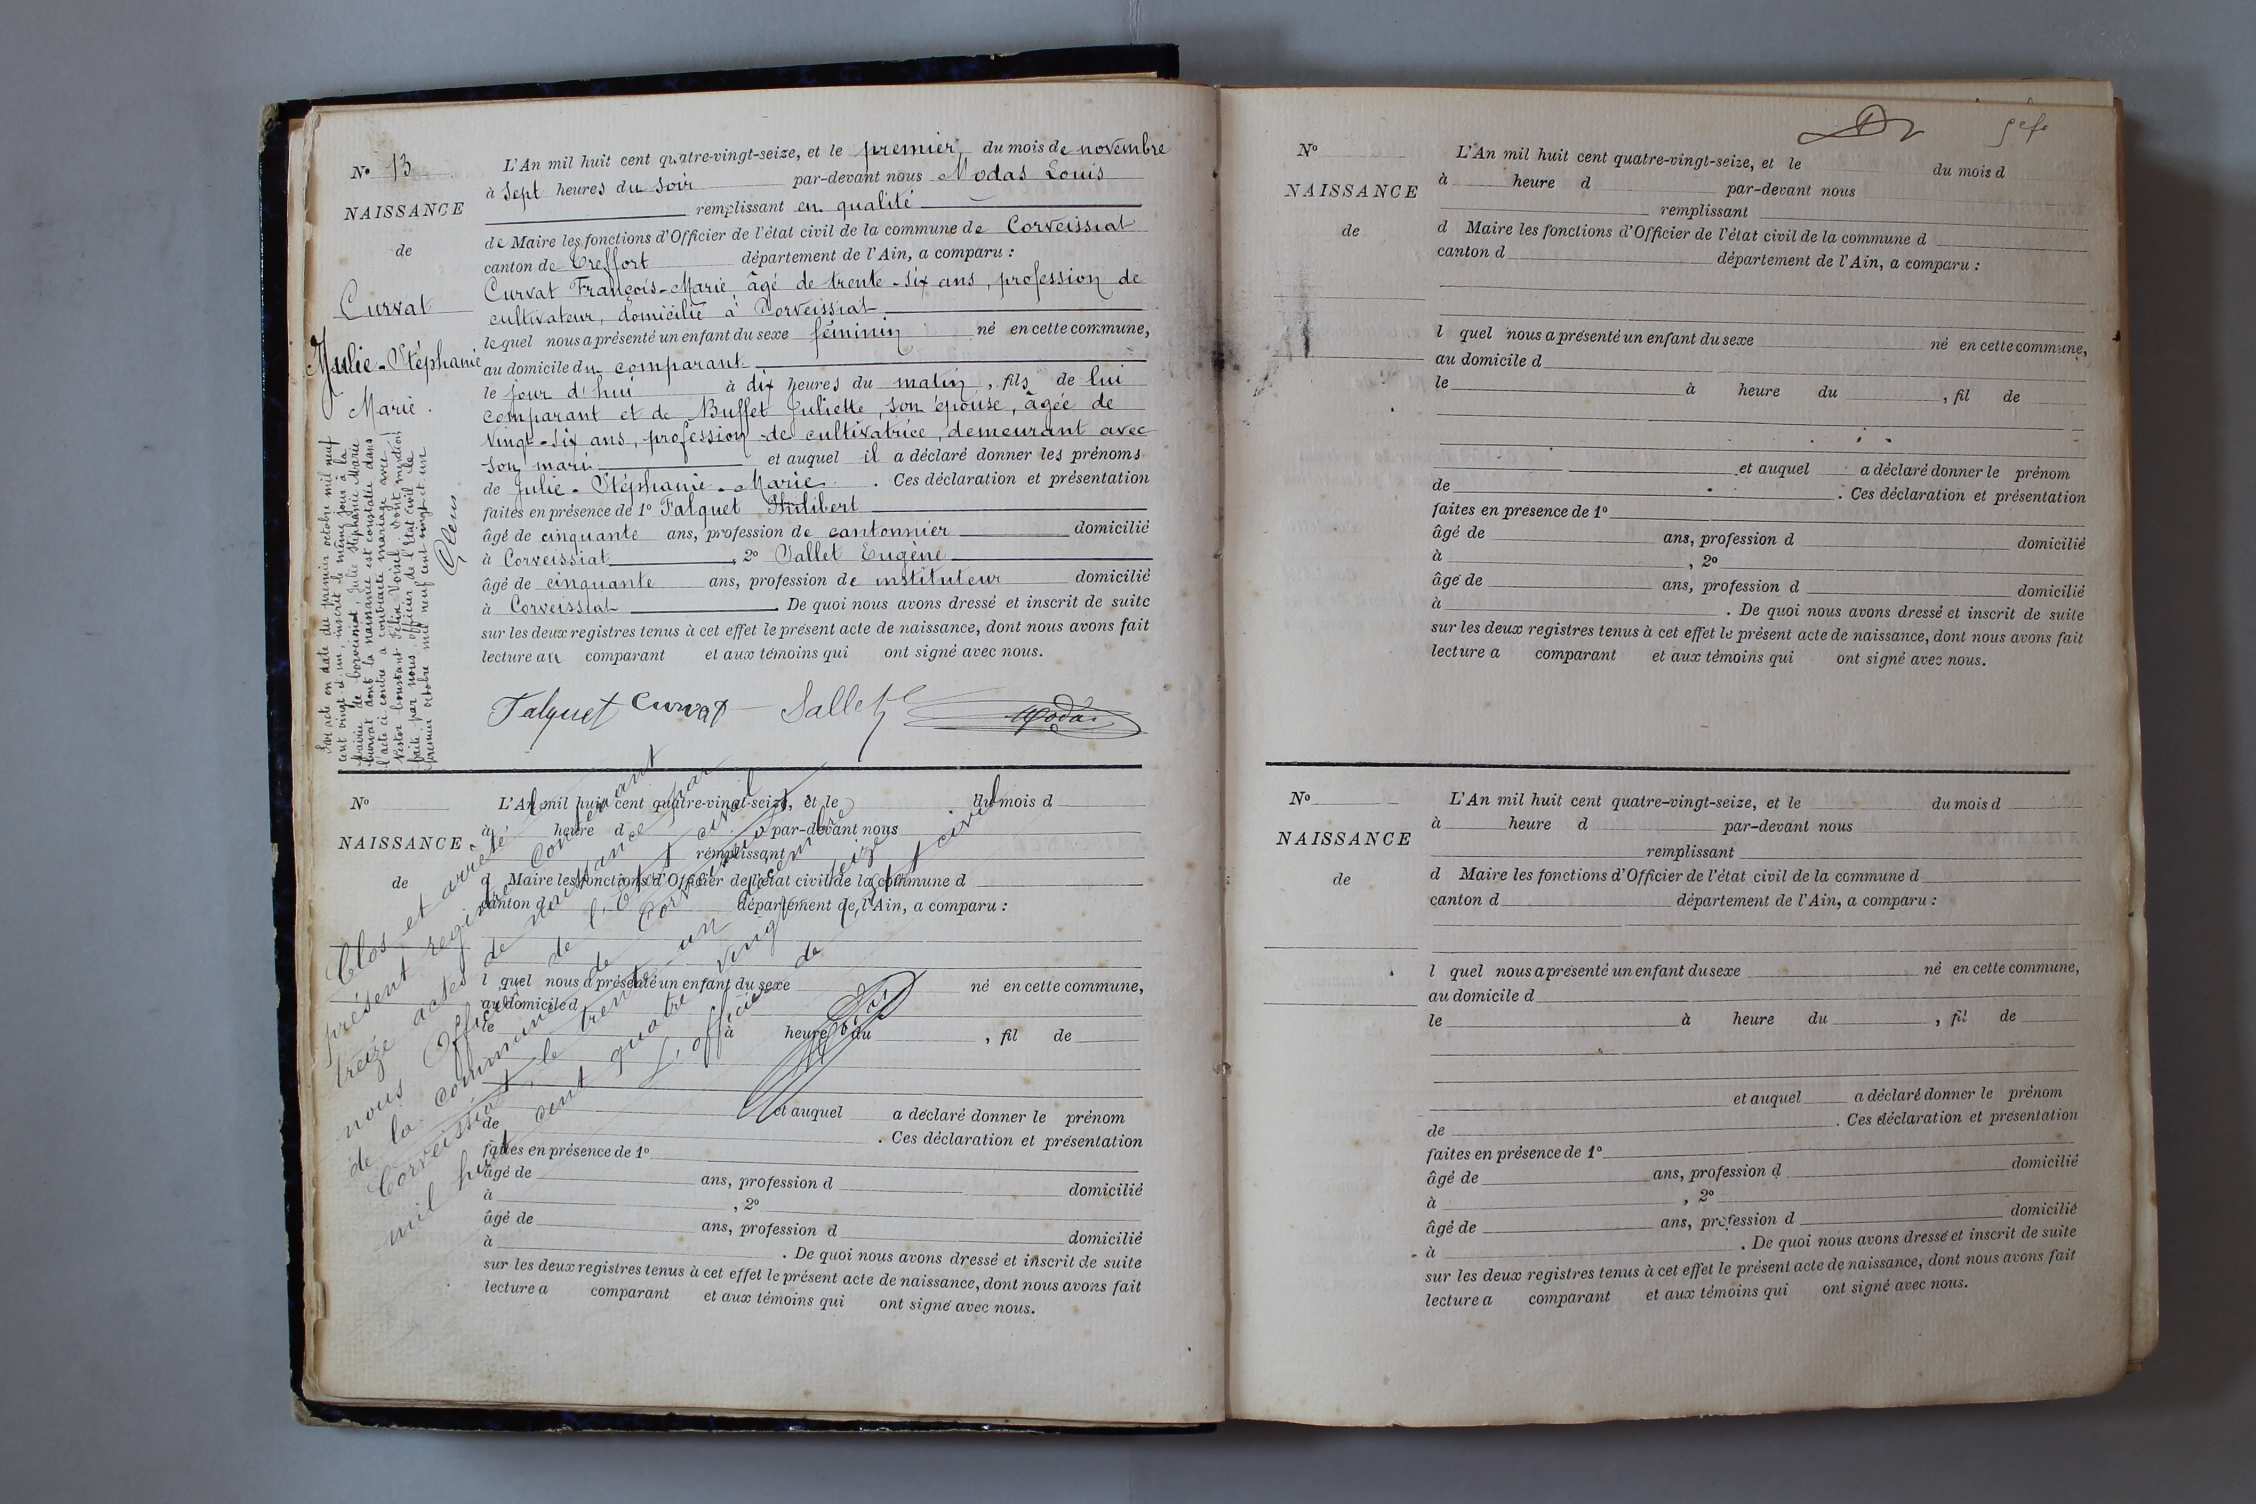 N° 13
NAISSANCE
de
Curvat
Julie-Stéphanie
Marie.
L'An mil huit cent quatre-vingt-seize, et le premier du mois de novembre
à Sept heures du soir par-devant nous Modas Louis
remplissant en qualité
de Maire les fonctions d'Officier de l'état civil de la commune de Corveissiat
canton de Treffort département de l'Ain, a comparu :
Curvat François-Marie âgé de trente-six ans, profession de
cultivateur, domicilié à Corveissiat
lequel nous a présenté un enfant du sexe féminin né en cette commune,
au domicile du comparant
le jour d'hui à dix heures du matin, fils de lui
comparant et de Buffet Juliette, son épouse, âgée de
vingt-six ans, profession de cultivatrice, demeurant avec
son mari et auquel il a déclaré donner les prénoms
de Julie-Stéphanie-Marie. Ces déclaration et présentation
faites en présence de 1° Falquet Philibert
âgé de cinquante ans, profession de cantonnier domicilié
à Corveissiat, 2° Sallet Eugène
âgé de cinquante ans, profession de instituteur domicilié
à Corveissiat. De quoi nous avons dressé et inscrit de suite
sur les deux registres tenus à cet effet le présent acte de naissance, dont nous avons fait
lecture au comparant et aux témoins qui ont signé avec nous.
Falquet Curvat Sallet Modas
Par acte en date du premier octobre mil neuf
cent vingt et un, inscrit le même jour à la
Mairie de Corveissiat, Julie Stéphanie Marie
Curvat dont la naissance est constatée dans
l'acte ci contre a contracté mariage avec
Nestor Constant Félix Voisel. Dont mention
faite par nous, officier de l'Etat civil le
premier octobre mil neuf cent vingt et un
N°
NAISSANCE
de
L'An mil huit cent quatre-vingt-seize, et le du mois d
à heure d par-devant nous
remplissant
d Maire les fonctions d'Officier de l'état civil de la commune d
canton d département de l'Ain, a comparu :
l quel nous a présenté un enfant du sexe né en cette commune,
au domicile d
le à heure du , fil de
et auquel a déclaré donner le prénom
de . Ces déclaration et présentation
faites en présence de 1°
âgé de ans, profession d domicilié
à , 2°
âgé de ans, profession d domicilié
à . De quoi nous avons dressé et inscrit de suite
sur les deux registres tenus à cet effet le présent acte de naissance, dont nous avons fait
lecture a comparant et aux témoins qui ont signé avec nous.
Clos et arrêté le
présent registre contenant
treize actes de naissance par
nous Officier de l'État civil
de la commune de
Corveissiat, le trente un décembre
mil huit cent quatre vingt seize
L'officier de l'état civil
N°
NAISSANCE
de
L'An mil huit cent quatre-vingt-seize, et le du mois d
à heure d par-devant nous
remplissant
d Maire les fonctions d'Officier de l'état civil de la commune d
canton d département de l'Ain, a comparu :
l quel nous a présenté un enfant du sexe né en cette commune,
au domicile d
le à heure du , fil de
et auquel a déclaré donner le prénom
de . Ces déclaration et présentation
faites en présence de 1°
âgé de ans, profession d domicilié
à , 2°
âgé de ans, profession d domicilié
à . De quoi nous avons dressé et inscrit de suite
sur les deux registres tenus à cet effet le présent acte de naissance, dont nous avons fait
lecture a comparant et aux témoins qui ont signé avec nous.
N°
NAISSANCE
de
L'An mil huit cent quatre-vingt-seize, et le du mois d
à heure d par-devant nous
remplissant
d Maire les fonctions d'Officier de l'état civil de la commune d
canton d département de l'Ain, a comparu :
l quel nous a présenté un enfant du sexe né en cette commune,
au domicile d
le à heure du , fil de
et auquel a déclaré donner le prénom
de . Ces déclaration et présentation
faites en présence de 1°
âgé de ans, profession d domicilié
à , 2°
âgé de ans, profession d domicilié
à . De quoi nous avons dressé et inscrit de suite
sur les deux registres tenus à cet effet le présent acte de naissance, dont nous avons fait
lecture a comparant et aux témoins qui ont signé avec nous.